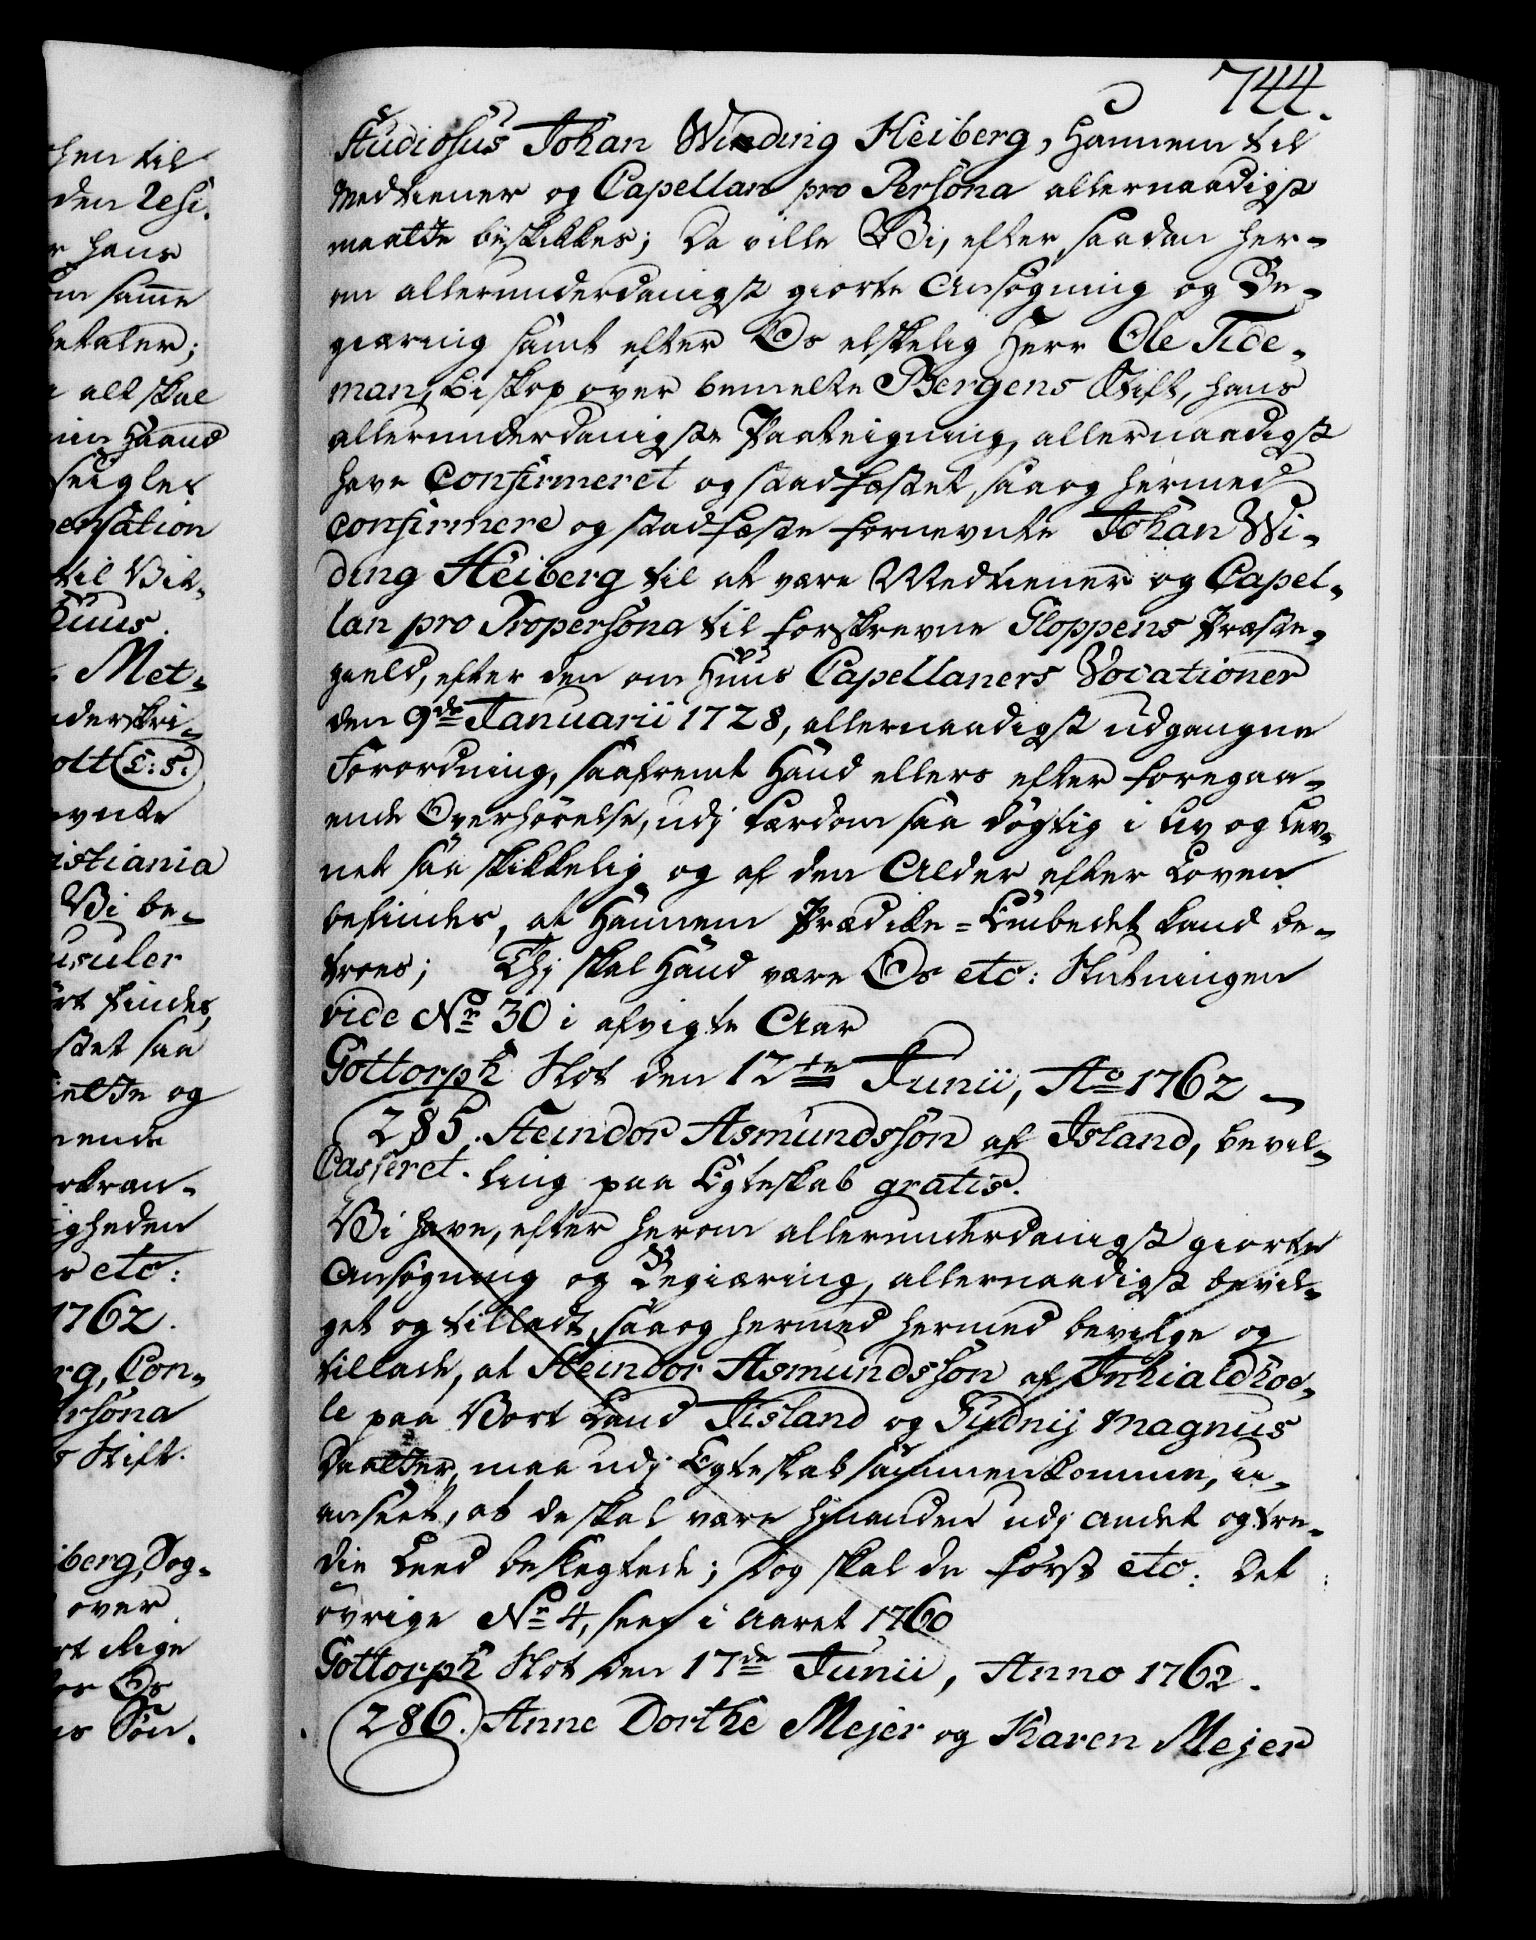 744.
Studiosus Johan Winding Heiberg, Hannem til
Medtiener og Capellan pro Persona allernaadigst
maatte beskikkes; Da ville Vi, efter saadan her-
om allerunderdanigst giorte Ansøgning og Be-
giæring samt efter Os elskelig Herr Ole Tide-
man, Biskop over bemelte Bergens Stift, hans
allerunderdanigste Paategning, allernaadigst
have Confirmeret og stadfæstet, saa og hermed
confirmere og stadfæste fornevnte Johan Wi-
ding Heiberg til at være Medtiener og Capel-
lan pro Propersona til forskrevne Gloppens Præste-
gield, efter den om Huus Capellaners Vocationer
den 9de Januarii 1728, allernaadigst udgangne
Forordning, saafremt Hand ellers efter foregaa-
ende Overhørelse, udj Lærdom saa døgtig i Liv og Lev-
net saa skikkelig og af den Alder efter Loven
befindes, at Hannem Prædike-Embedet kand be-
troes; Thj skal Hand være Os etc: Slutningen
vide No 30 i afvigte Aar
Gottorph Slot den 12te Junii, Ao 1762
285. Steindor Asmundssøn af Island, bevil-
Casseret. ling paa Egteskab gratis.
Vi have, efter herom allerunderdanigst giorte
Ansøgning og Begiæring, allernaadigst bevil-
get og tilladt, saa og hermed hermed bevilge og
tillade, at Steindor Asmundssøn af Inhialdhoe-
le paa Vort Land Iisland og Gudnij Magnus
Daatter, maa udj Egteskab sammenkomme, u-
anseet, at de skal være hinanden udj andet og tre-
die Leed beslegtede; Dog skal de først etc: Det
øvrige No 4, seer i Aaret 1760
Gottorph Slot den 17de Junii, Anno 1762.
286. Anne Dorthe Mejer og Karen Mejer
chen til
den Resi.
hans
om samme
betaler;
alt skal
Haand
seigler
pensation
til Vit-
Huus.
Met-
nderskri-
ott (L:S:)
evnte
istiania
Vi be-
usuler
ort findes,
stet saa
ielte og
nende
gheden
etc:
1762.
rg, Con-
ersona
Stift.
iberg, Sog-
over
rt Rige
Os
Søn.